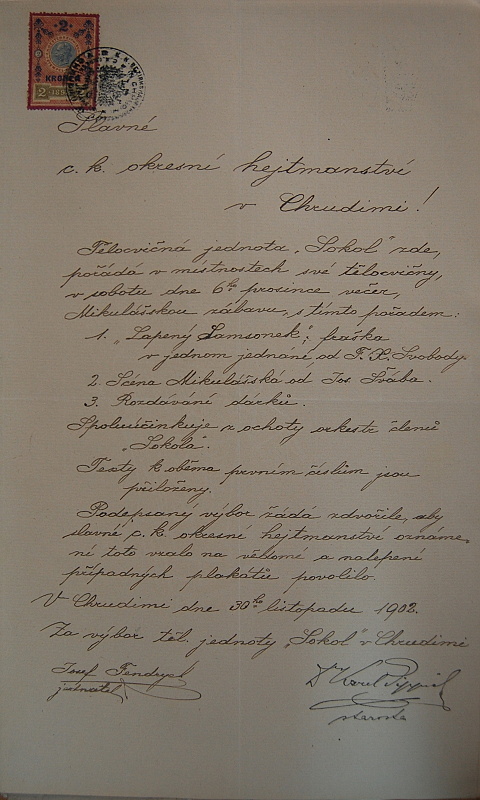 2
KRONEN
2 189
Slavné
c. k. okresní hejtmanství
v Chrudimi!
Tělocvičná jednota „Sokol" zde,
pořádá v místnostech své tělocvičny,
v sobotu dne 6ho prosince večer,
Mikulášskou zábavu, s tímto pořadem:
1. „Zapený Samsonek"; fraška
v jednom jednání, od F. X. Svobody.
2. Scéna Mikulášská od Jos. Švába.
3. Rozdávání dárků.
Spoluúčinkuje z ochoty orkestr členů
„Sokola".
Texty k oběma prvním číslům jsou
přiloženy.
Podepsaný výbor žádá zdvořile, aby
slavné c. k. okresní hejtmanství oznáme-
ní toto vzalo na vědomí a nalepení
případných plakátů povolilo.
V Chrudimi dne 30ho listopadu 1902.
Za výbor těl. jednoty „Sokol" v Chrudimi
Josef Fendrych
jednatel
Dr Karel Pippich
starosta